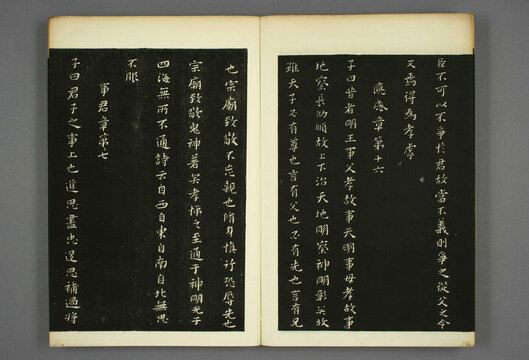 臣不可以不爭於君故當不義則爭之從父之令
又焉得為孝虖
應感章第十六
子曰昔者明王事父孝故事天明事母孝故事
地察長幼順故上下治天地明察神明彰矣故
雖天子又有尊也言有父也必有先也言有兄
也宗廟致敬不忘親也脩身慎行恐辱先也
宗廟致敬鬼神著矣孝悌之至通于神明光于
四海無所不通詩云自西自東自南自北無思
不服
事君章第七
子曰君子之事上也進思盡忠退思補過將